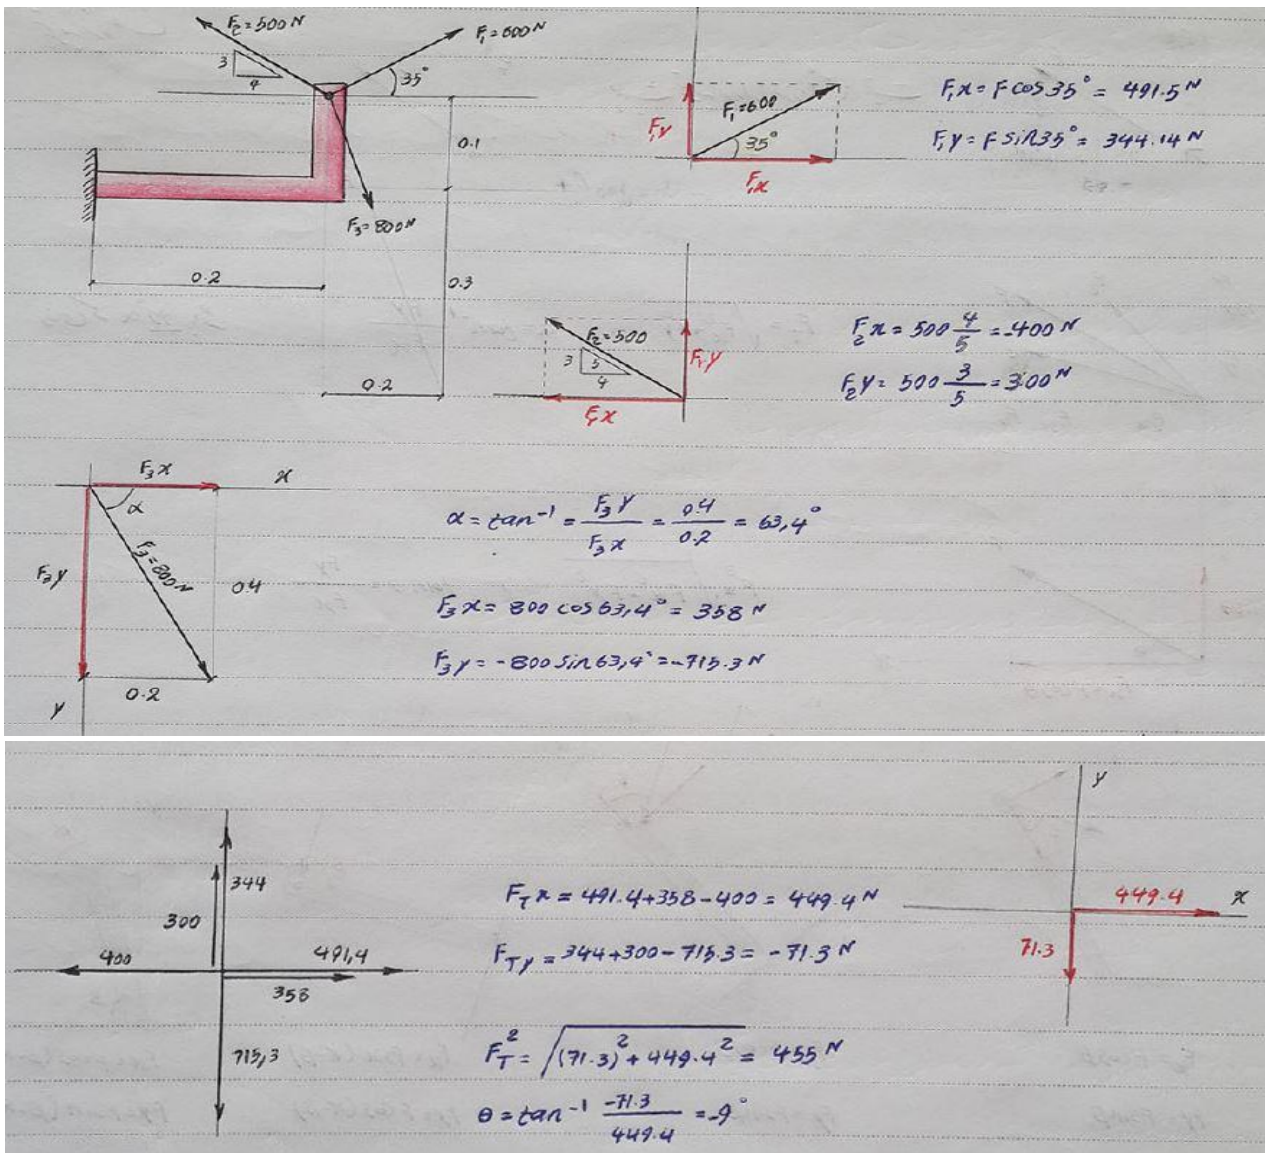 F₂=500 N
F₁=600 N
3
4
35°
0.1
F₃=800 N
0.2
0.3
0.2
F₁y
F₁=600
35°
F₁x
F₁x = F cos 35° = 491.5 N
F₁y = F sin 35° = 344.14 N
F₂=500
3
5
4
F₂y
F₂x
F₂x = 500 4/5 = -400 N
F₂y = 500 3/5 = 300 N
F₃x
x
α
F₃y
F₃=800 N
0.4
0.2
y
α = tan⁻¹ = F₃y/F₃x = 0.4/0.2 = 63,4°
F₃x = 800 cos 63,4° = 358 N
F₃y = -800 sin 63,4° = -715.3 N
344
300
400
491,4
358
715,3
F_T x = 491.4+358-400 = 449.4 N
F_T y = 344+300-715.3 = -71.3 N
F_T² = √((71.3)² + 449.4²) = 455 N
θ = tan⁻¹ -71.3/449.4 = -9°
y
449.4
x
71.3